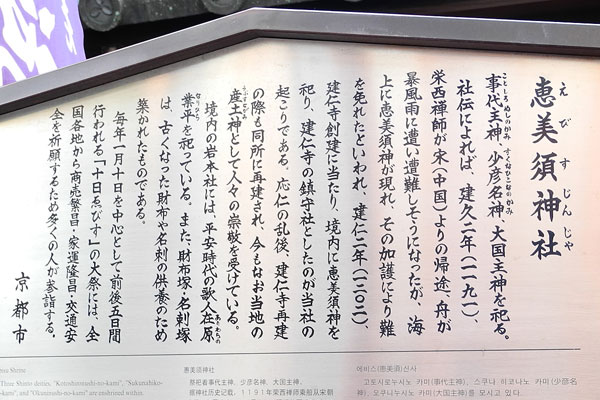 恵美須神社
えびすじんじゃ
事代主神、少彦名神、大国主神を祀る。
ことしろぬしのかみ すくなひこなのかみ
社伝によれば、建久二年(一一九一)、
栄西禅師が宋(中国)よりの帰途、舟が
暴風雨に遭い遭難しそうになったが、海
上に恵美須神が現れ、その加護により難
を免れたといわれ、建仁二年(一二〇二)、
建仁寺創建に当たり、境内に恵美須神を
祀り、建仁寺の鎮守社としたのが当社の
起こりである。応仁の乱後、建仁寺再建
の際も同所に再建され、今もなお当地の
産土神として人々の崇敬を受けている。
うぶすながみ
境内の岩本社には、平安時代の歌人在原
ありわらの
業平を祀っている。また、財布塚・名刺塚
なりひら
は、古くなった財布や名刺の供養のため
築かれたものである。
毎年一月十日を中心として前後五日間
行われる「十日ゑびす」の大祭には、全
国各地から商売繁昌・家運隆昌・交通安
全を祈願するため多くの人が参詣する。
京都市
Shrine
Three Shinto deities, "Kotoshironushi-no-kami", "Sukunahiko-
and "Okuninushi-no-kami" are enshrined within.
恵美须神社
祭祀着事代主神、少彦名神、大国主神。
据神社历史记载，1191年荣西禅师乘船从宋朝
에비스(恵美須)신사
고토시로누시노 카미(事代主神), 스쿠나 히코나노 카미(少彦名
神), 오쿠니누시노 카미(大国主神)를 모시고 있다.